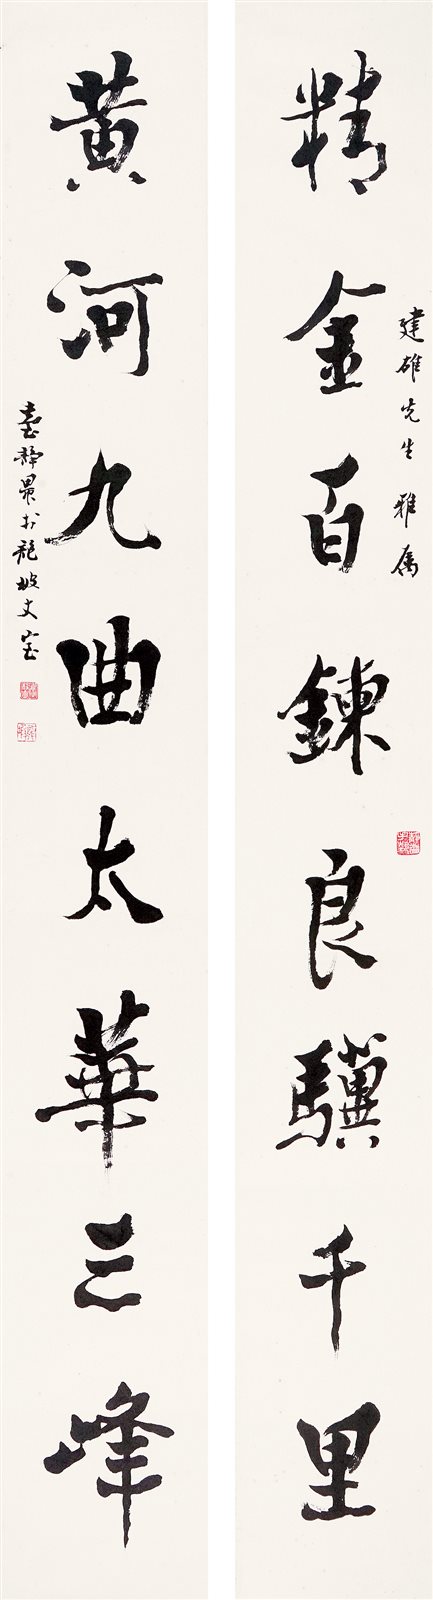 精金百鍊良驥千里
建雄先生雅属
黄河九曲太華三峰
臺静農於龍坡丈室